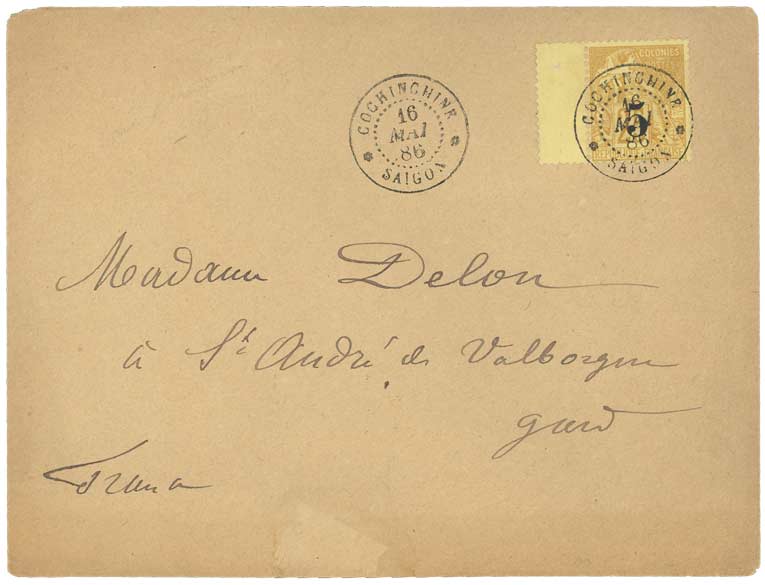 COCHINCHINE
16
MAI
86
SAIGON
COLONIES
POSTES
COCHINCHINE
16
5
MAI
86
SAIGON
Madame Delon
à St André de Valborgne
gard
France